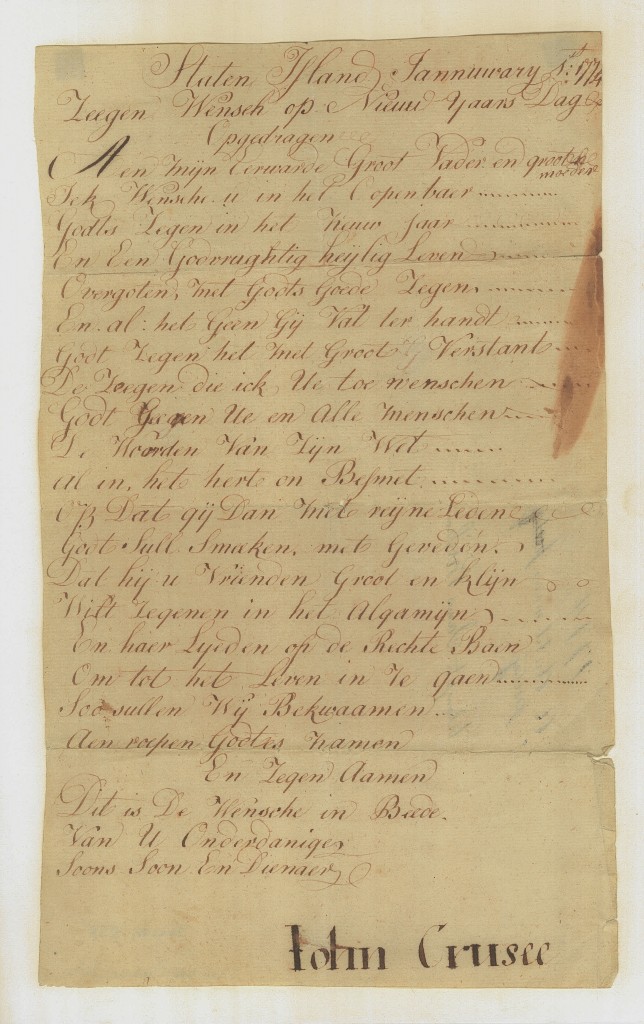 Staten Island Janniuwary 1: 1774
Zeegen Wensch op Nieuw Yaars Dag
Opgedragen
Aen mijn Eerwarde Groot Vader en groot moeder
Ick Wensche u in het Openbaer
Godts Zegen in het Nieuw Jaar
En Een Godvrughtig heylig Leven
Overgoten, met Godts Goede Zegen
En al: het Geen Gy Val ter handt
Godt Zegen het met Groot Verstant
De Zeegen die ick Ue toe wenschen
Godt Geegen Ue en Alle menschen
De Woorden Van Zyn Wet
al in, het herte on Besmet
Op Dat gij Dan met reyne Leden
Godt Sull Smeken, met Gereden,
Dat hij u Vrienden Groot en klijn
Wilt Zegenen in het Algamijn
En haer Lyeden op de Rechte Baen
Om tot het Leven in Te gaen
Soo sullen Wij Bekwaamen
Aen roepen Godtes namen
En Zegen Aamen
Dit is De Wensche in Beede.
Van U Onderdanige
Soons Soon En Dienaer
John Crusee